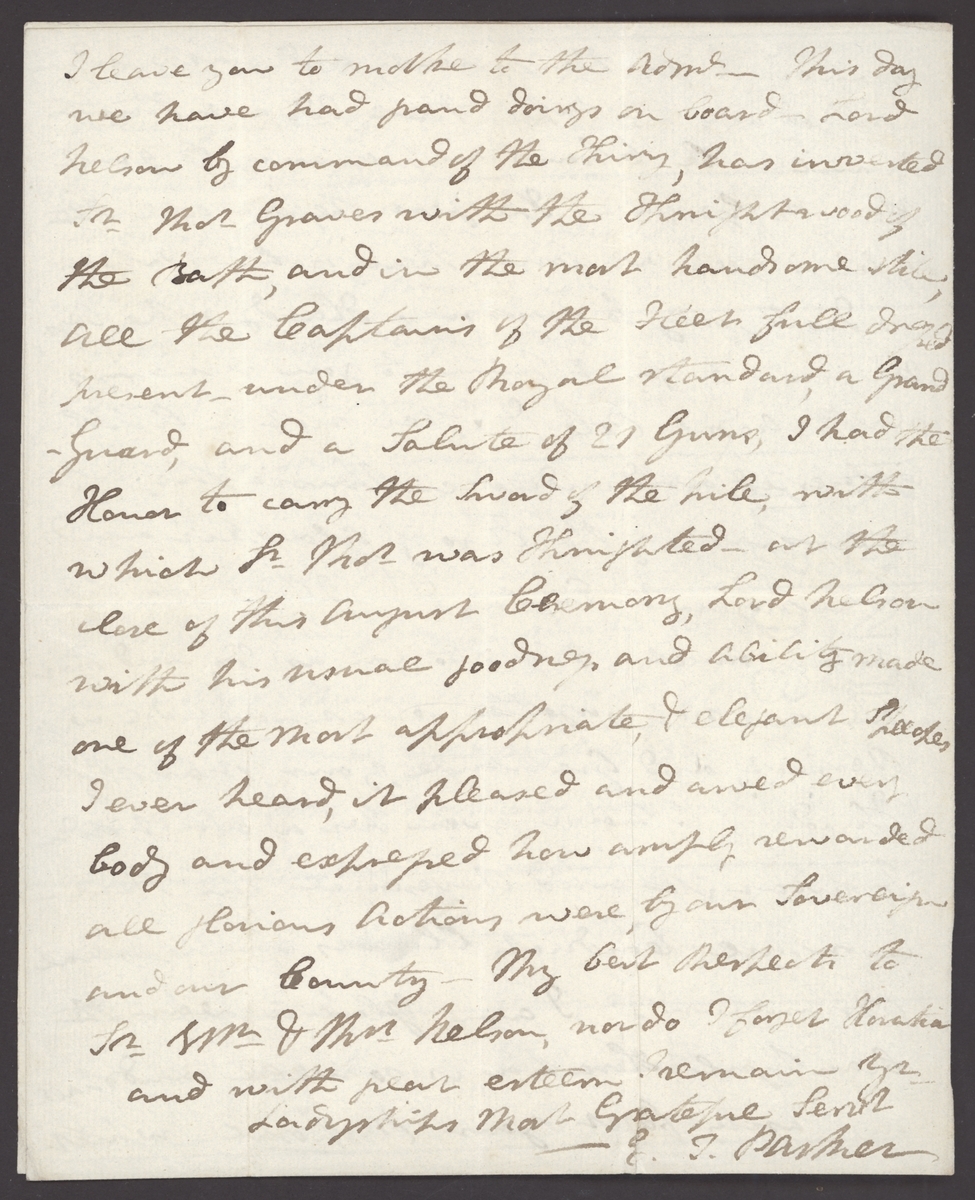 I leave you to make to the Adml — This day
we have had grand doings on board — Lord
Nelson by command of the King, has invested
Sr. Thos. Graves with the Knightwood of
the Bath, and in the most handsome stile,
all the Captains of the Fleet full dressed
present — under the Royal standard, a Grand
-Guard, and a Salute of 21 Guns, I had the
Honor to carry the Sword of the Nile, with
which Sr. Thos. was Knighted — at the
close of this August Ceremony, Lord Nelson
with his usual goodness and ability made
one of the most appropriate, & elegant Speeches
I ever heard, it pleased and awed every
body and expressed how amply rewarded
all glorious Actions were, by our Sovereign
and our Country — My best Respects to
Sr. Wm. & Mrs. Nelson, nor do I forget Horatia
and with great esteem I remain Yr.
Ladyships Most Grateful Servt
E. T. Parker